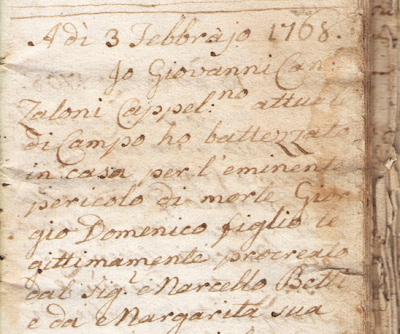 Adì 3 Febbrajo 1768.
Jo Giovanni Can:
zaloni Cappel:no attuale
di Campo ho battezzato
in casa per l'eminente
pericolo di morte Gior
gio Domenico figlio le
gittimamente procreato
dal Sig.r Marcello Betti
e da Margarita sua